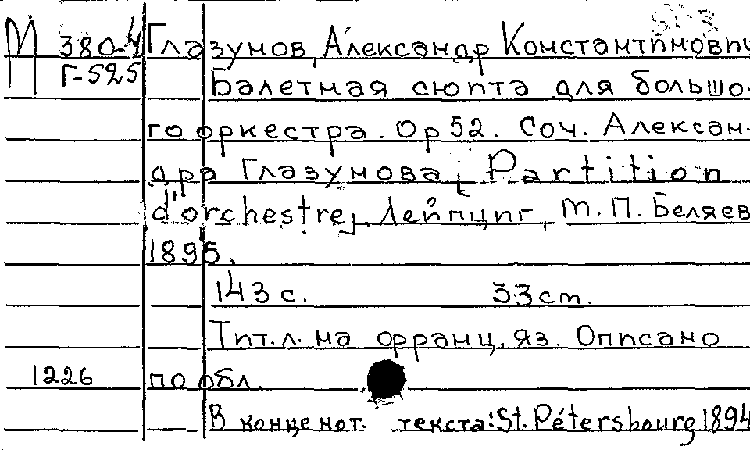 М 380-4 Глазунов, Александр Константинович
Г-525 Балетная сюита для большо-
го оркестра. Op 52. Соч. Алексан-
дра Глазунова [Partition
d'orchestre]. Лейпциг, М. П. Беляев
1895.
143 с. 33 cm.
Тит. л. на франц. яз. Описано
1226 по обл.
В конце нот. текста: St. Pétersbourg 1894